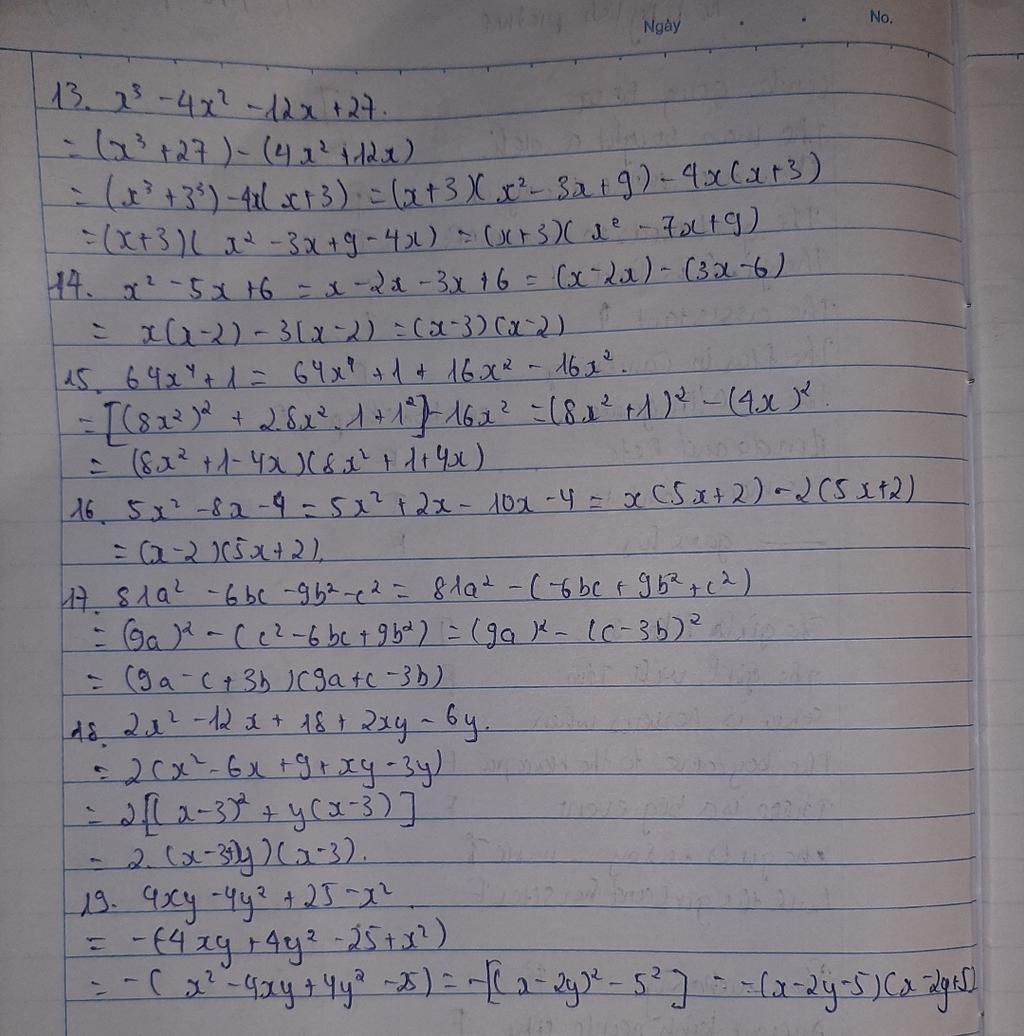 Ngày No.
13. x³ - 4x² - 12x + 27.
= (x³ + 27) - (4x² + 12x)
= (x³ + 3³) - 4x(x+3) = (x+3)(x² - 3x + 9) - 4x(x+3)
= (x+3)(x² - 3x + 9 - 4x) = (x+3)(x² - 7x + 9)
14. x² - 5x + 6 = x - 2x - 3x + 6 = (x - 2x) - (3x - 6)
= x(x-2) - 3(x-2) = (x-3)(x-2)
15. 64x⁴ + 1 = 64x⁴ + 1 + 16x² - 16x².
= [(8x²)² + 2.8x².1 + 1²] - 16x² = (8x² + 1)² - (4x)²
= (8x² + 1 - 4x)(8x² + 1 + 4x)
16. 5x² - 8x - 4 = 5x² + 2x - 10x - 4 = x(5x+2) - 2(5x+2)
= (x-2)(5x+2).
17. 81a² - 6bc - 9b² - c² = 81a² - (-6bc + 9b² + c²)
= (9a)² - (c² - 6bc + 9b²) = (9a)² - (c - 3b)²
= (9a - c + 3b)(9a + c - 3b)
18. 2x² - 12x + 18 + 2xy - 6y.
= 2(x² - 6x + 9 + xy - 3y)
= 2[(x-3)² + y(x-3)]
= 2.(x-3+y)(x-3).
19. 4xy - 4y² + 25 - x²
= -(-4xy + 4y² - 25 + x²)
= -(x² - 4xy + 4y² - 25) = -[(x-2y)² - 5²] = -(x-2y-5)(x-2y+5)